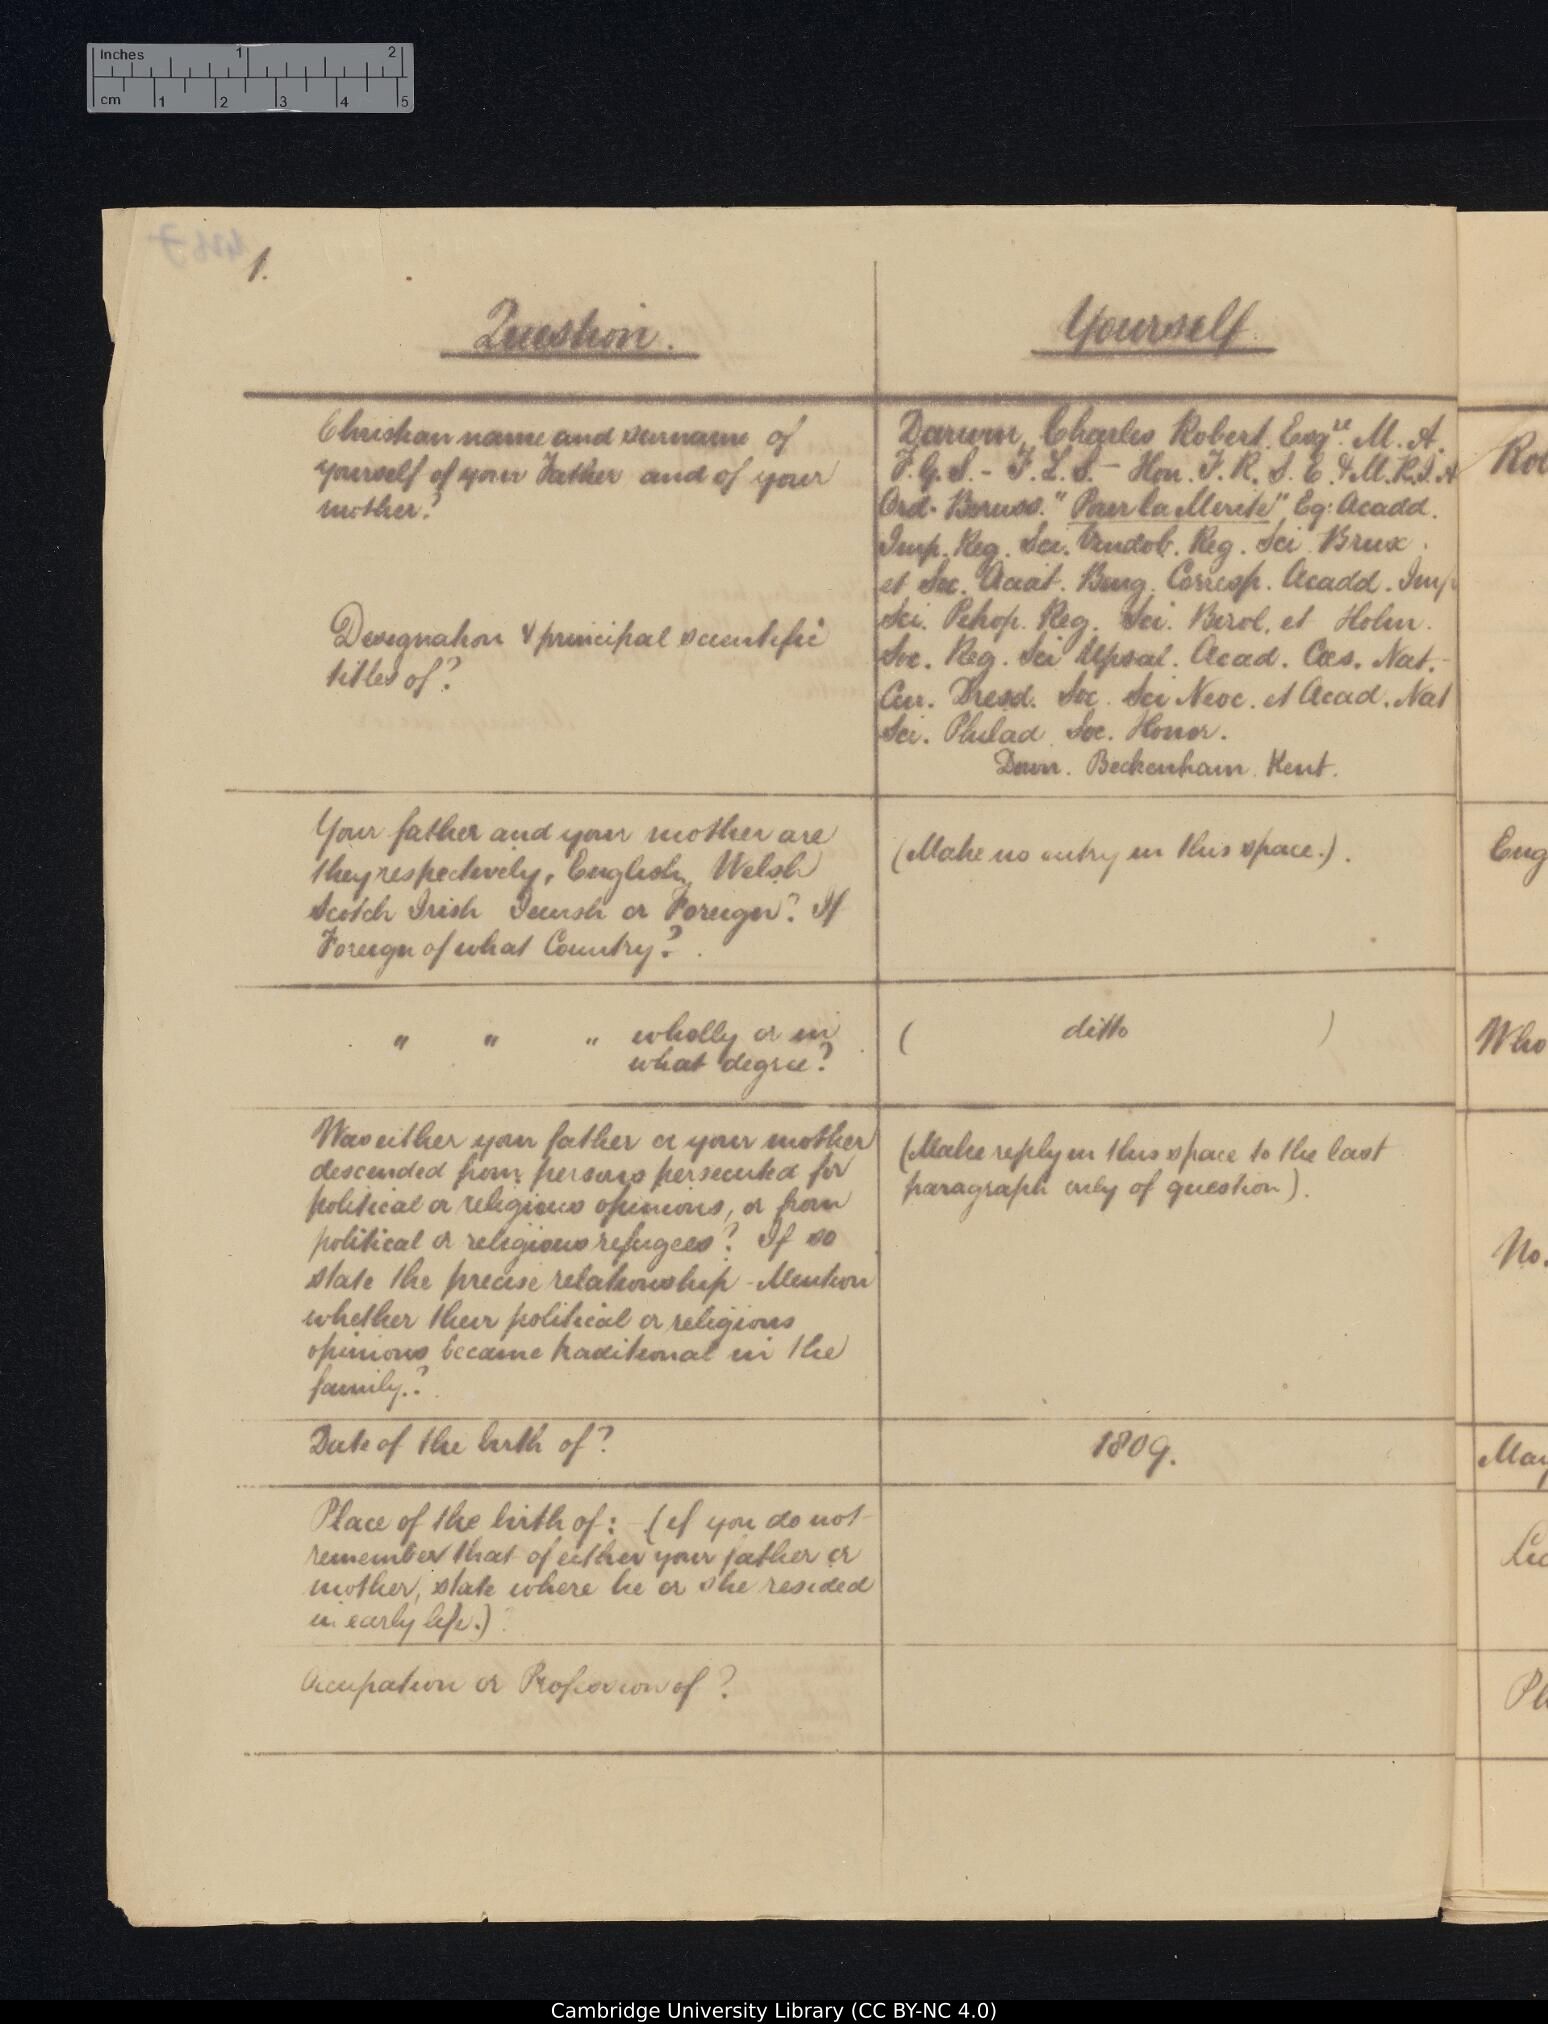 Inches 1 2
cm 1 2 3 4 5
1.
Question.
Yourself
Christian name and surname of
yourself of your Father and of your
mother?
Designation & principal scientific
titles of?
Darwin, Charles Robert. Esqre. M. A.
F. G. S. - F. L. S. - Hon. F. R. S. E. & M. R. I. A
Ord. Boruss. "Pour la Merite" Eq: Acadd.
Imp. Reg. Sci. Vindob. Reg. Sci Brux.
et Soc. Acad. Bung. Corresp. Acadd. Imp
Sci. Petrop. Reg. Sci. Berol. et Holm.
Soc. Reg. Sci Upsal. Acad. Caes. Nat.
Cur. Dresd. Soc. Sci Neoc. et Acad. Nat
Sci. Philad Soc. Honor.
Down. Beckenham. Kent.
Your father and your mother are
they respectively, English, Welsh
Scotch Irish Jewish or Foreign? If
Foreign of what Country?
(Make no entry in this space.).
Eng
" " " wholly or in
what degree?
( ditto )
Who
Was either your father or your mother
descended from persons persecuted for
political or religious opinions, or from
political or religious refugees? If so
state the precise relationship - Mention
whether their political or religious
opinions became traditional in the
family.?
(Make reply in this space to the last
paragraph only of question).
No.
Date of the birth of?
1809.
May
Place of the birth of: - (if you do not
remember that of either your father or
mother, state where he or she resided
in early life.)?
Occupation or Profession of?
Cambridge University Library (CC BY-NC 4.0)